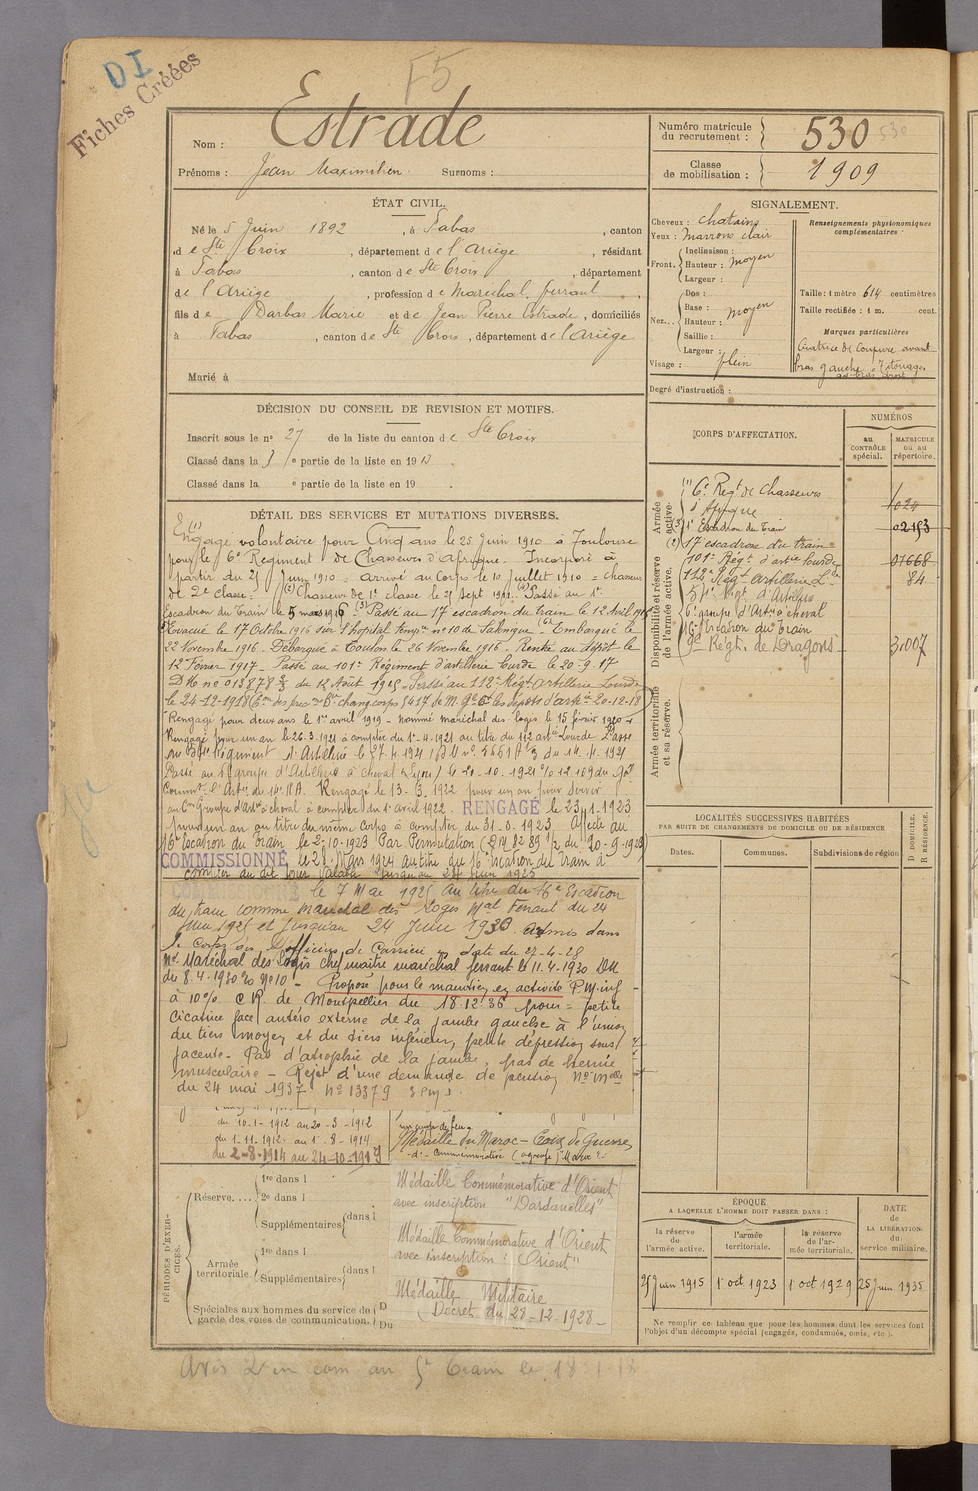 DI
Fiches Créées
F5
Nom : Estrade
Prénoms : Jean Maximilien. Surnoms :
Numéro matricule du recrutement : 530 530
Classe de mobilisation : 1909
ÉTAT CIVIL.
Né le 5 Juin 1892, à Tabas, canton
de Ste Croix, département de l'Ariège, résidant
à Tabas, canton de Ste Croix, département
de l'Ariège, profession de Maréchal ferrant,
fils de Darbas Marie et de Jean Pierre Estrade, domiciliés
à Tabas, canton de Ste Croix, département de l'Ariège
Marié à
SIGNALEMENT.
Cheveux : chatains
Yeux : Marrons clair
Front. Inclinaison :
Hauteur : moyen
Largeur :
Nez... Dos :
Base : moyen
Hauteur :
Saillie :
Largeur :
Visage : plein
Renseignements physionomiques complémentaires :
Taille : 1 mètre 614 centimètres
Taille rectifiée : 1 m. cent.
Marques particulières
Cicatrice de Coupure avant-
bras gauche. Tatouages
au bras droit
Degré d'instruction :
DÉCISION DU CONSEIL DE REVISION ET MOTIFS.
Inscrit sous le n° 27 de la liste du canton de Ste Croix
Classé dans la 3e partie de la liste en 191
Classé dans la e partie de la liste en 19
DÉTAIL DES SERVICES ET MUTATIONS DIVERSES.
(1) Engagé volontaire pour Cinq ans le 25 Juin 1910 à Toulouse
pour le 6e Régiment de Chasseurs d'Afrique. Incorporé à
partir du 25 Juin 1910 = arrivé au Corps le 10 Juillet 1910 = chasseur
de 2e classe. (2) Chasseur de 1e classe le 25 sept 1911. Passé au 1er
Escadron du Train le 5 mars 1916. (3) Passé au 17 escadron du train le 12 Avril 1916
Evacué le 17 Octobre 1916 sur l'hopital tempre no 10 de Salonique. Embarqué le
22 Novembre 1916. Débarqué à Toulon le 26 Novembre 1916 - Rentré au dépôt le
12 Février 1917. Passé au 101e Régiment d'artillerie lourde le 20-9-17
DM no 013878 2/3 du 12 Août 1918 - Passé au 112e Régt Artillerie Lourde
le 24-12-1918
Rengagé pour deux ans le 1er avril 1919 - nommé maréchal des logis le 15 février 1920 -
Rengagé pour un an le 26.3.1921 à compter du 1er-4-1921 au titre du 112 artie Lourde. Passé
Régiment d'Artillerie le 27.4.1921
Passé au groupe d'Artillerie à cheval (Lyon) le 20.10.1921
Rengagé le 13.3.1922 pour un an pour servir
au groupe d'artie à cheval à compter du 1er avril 1922. RENGAGÉ le 23.1.1923
pour un an au titre du même corps à compter du 31-3-1923 Affecté au
16e Escadron du Train le 2-10-1923 Par Permutation du 20-9-1923
COMMISSIONNÉ le 28 Mars 1924 au titre du 16e Escadron du Train à
compter du dit jour valable jusqu'au 24 Juin 1925
le 7 Mai 1925 Au titre du 16e Escadron
du train comme maréchal des logis Mal Ferrant du 24
Juin 1925 et jusqu'au 24 Juin 1930. Admis dans
le Corps des S officiers de Carrière en date du 22-4-28
Né Maréchal des logis chef maître maréchal ferrant le 11.4.1930 DM
du 8.4.1930 No 10 - Proposé pour le maintien en activité P.M. inf
à 10% C.R. de Montpellier du 18.12.36 pour = petite
cicatrice face antéro externe de la jambe gauche à l'union
du tiers moyen et du tiers inférieur, petite dépression sous
jacente - Pas d'atrophie de la jambe, pas de hernie
musculaire - Rejet d'une demande de pension
du 24 mai 1937 no 13379
du 10-1-1912 au 20-3-1912
du 1-11-1912 au 1-8-1914
du 2-8-1914 au 24-10-1919
un coup de feu.
Médaille du Maroc - Croix de Guerre
Médaille Commémorative d'Orient
avec inscription "Dardanelles"
Médaille Commémorative d'Orient
avec inscription : "Orient"
Médaille Militaire
(Décret du 28-12-1928 -
PÉRIODES D'EXERCICES.
Réserve....
1re dans l
2e dans l
Supplémentaires dans l
Armée territoriale.
1re dans l
Supplémentaires dans l
Spéciales aux hommes du service de garde des voies de communication.
D
Du
CORPS D'AFFECTATION.
NUMÉROS
au CONTRÔLE spécial.
MATRICULE ou au répertoire.
Armée active.
(1) 6e Régt de Chasseurs d'Afrique 1024
(3) 1er Escadron du Train 02153
(2) 17 escadron du train 01668
Disponibilité et réserve de l'armée active.
101e Régt d'artie lourde
112e Régt Artillerie Lde 84
Régt d'Artillerie
6e groupe d'Artie à cheval
16e Escadron du Train
9e Régt. de Dragons 3007
Armée territoriale et sa réserve.
LOCALITÉS SUCCESSIVES HABITÉES
PAR SUITE DE CHANGEMENTS DE DOMICILE OU DE RÉSIDENCE
Dates.
Communes.
Subdivisions de région
D DOMICILE.
R RÉSIDENCE.
ÉPOQUE
A LAQUELLE L'HOMME DOIT PASSER DANS :
la réserve de l'armée active.
l'armée territoriale.
la réserve de l'armée territoriale.
DATE de LA LIBÉRATION du service militaire.
25 Juin 1915
1er oct 1923
1er oct 1929
25 Juin 1935
Ne remplir ce tableau que pour les hommes dont les services font
l'objet d'un décompte spécial (engagés, condamnés, omis, etc.).